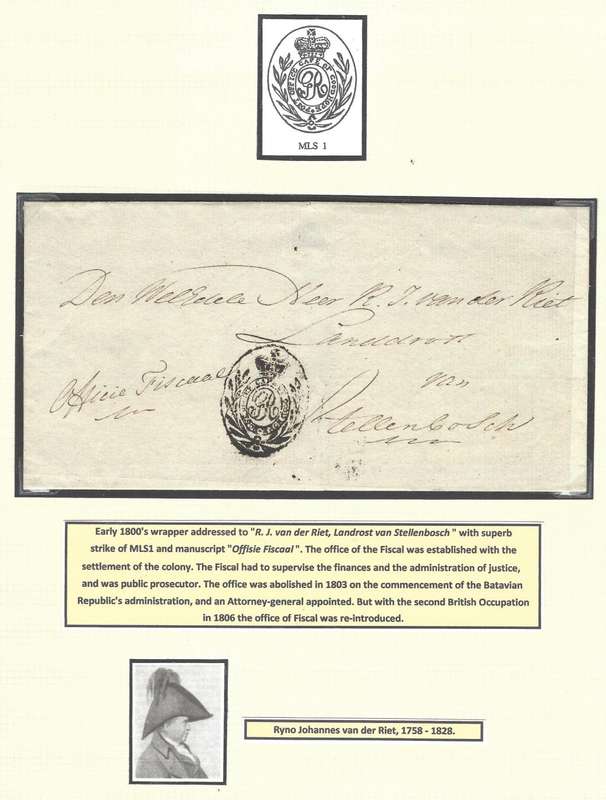 POST OFFICE CAPE OF GOOD HOPE
GR
MLS 1
Den WelEdele Heer R. J. van der Riet
Landdrost
van
Stellenbosch
Officie Fiscaal
GR
Early 1800's wrapper addressed to "R. J. van der Riet, Landrost van Stellenbosch" with superb
strike of MLS1 and manuscript "Offisie Fiscaal". The office of the Fiscal was established with the
settlement of the colony. The Fiscal had to supervise the finances and the administration of justice,
and was public prosecutor. The office was abolished in 1803 on the commencement of the Batavian
Republic's administration, and an Attorney-general appointed. But with the second British Occupation
in 1806 the office of Fiscal was re-introduced.
Ryno Johannes van der Riet, 1758 - 1828.